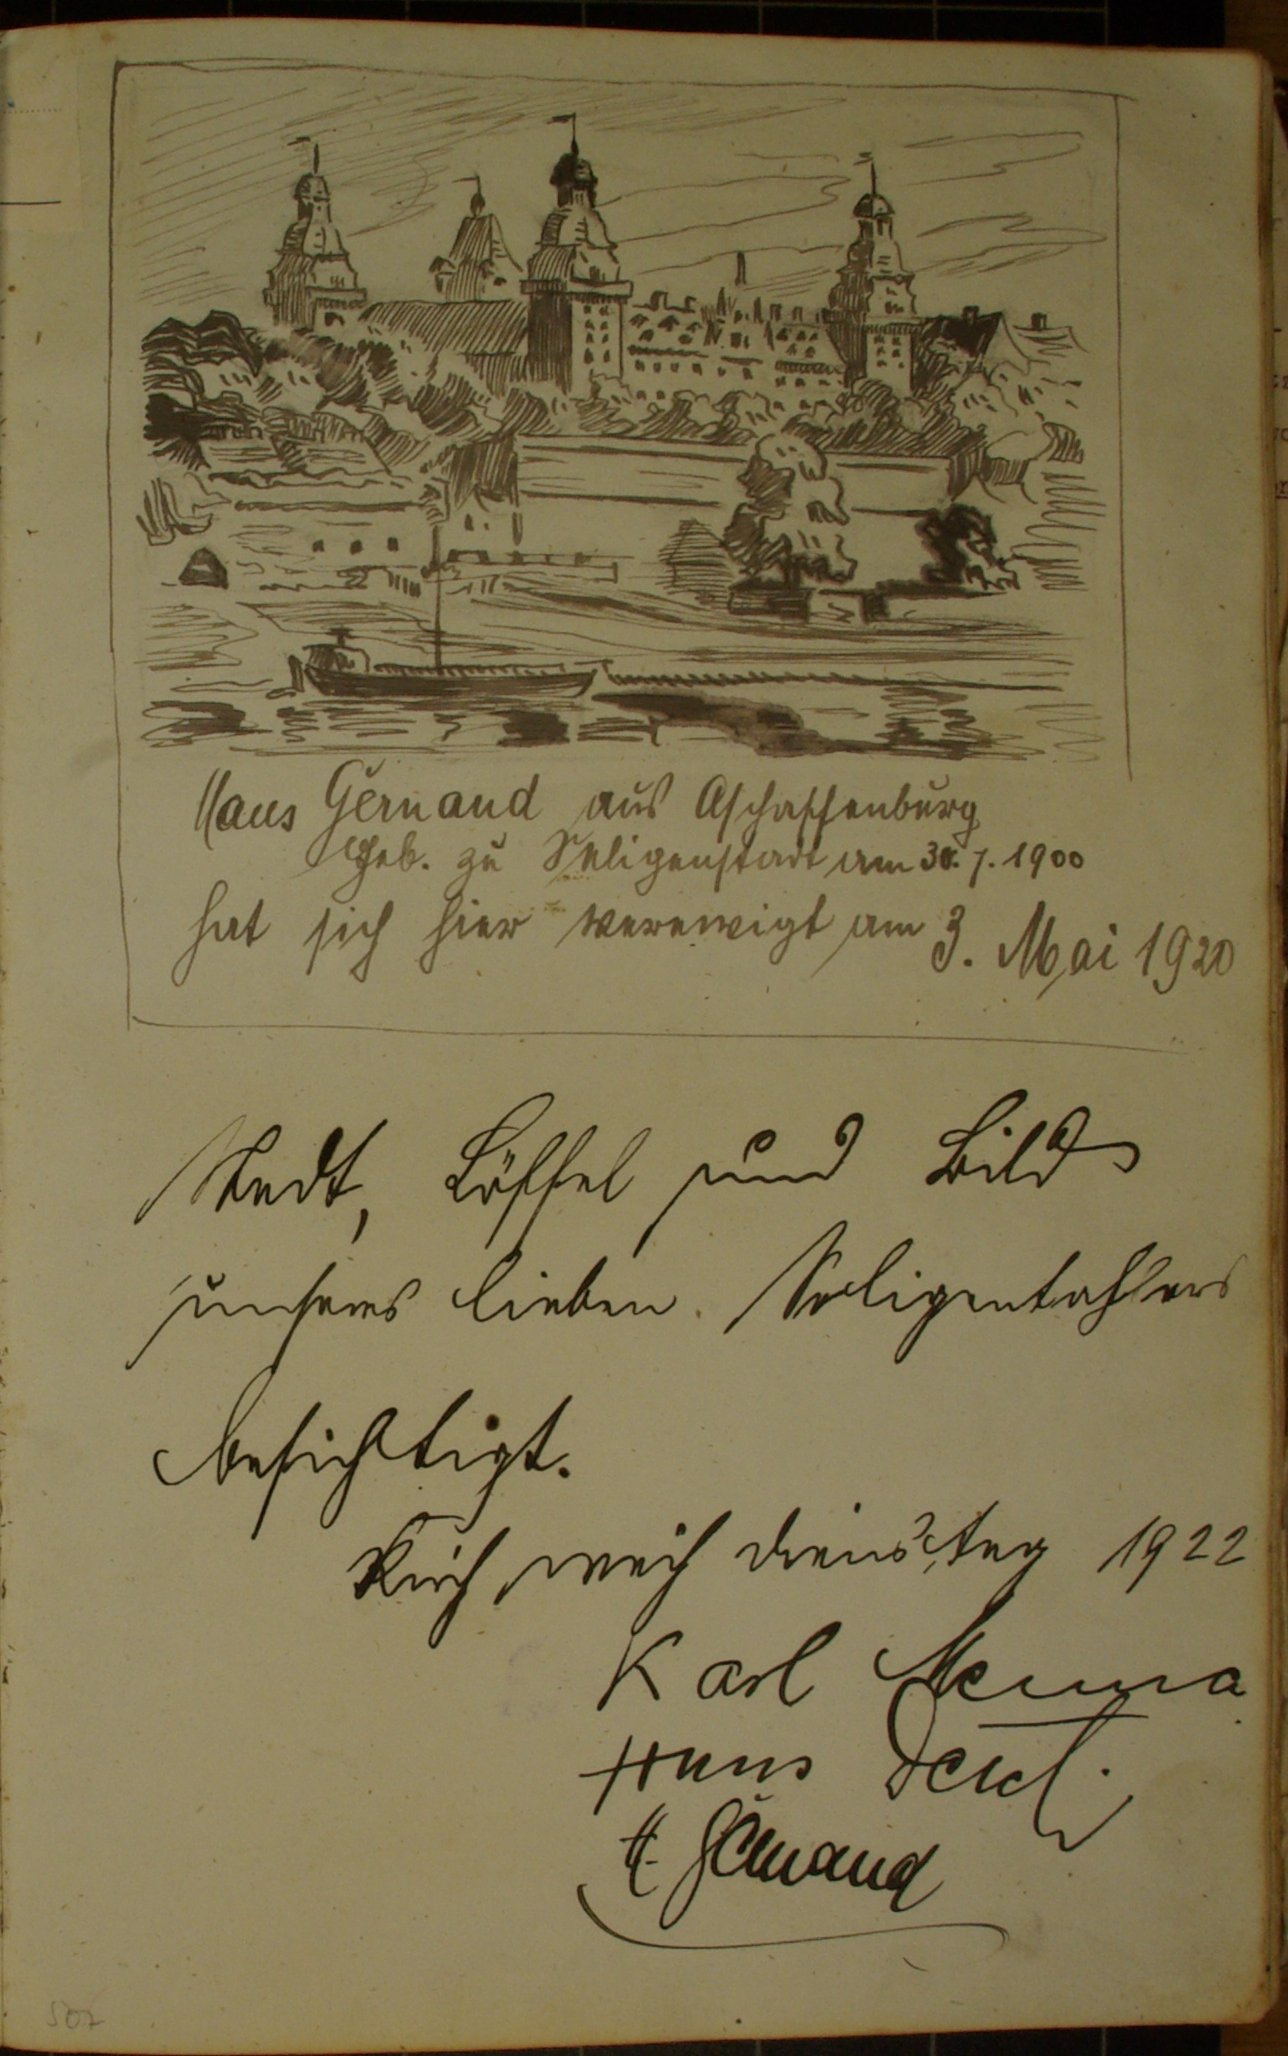 Hans Gernand aus Aschaffenburg
Geb. zu Seligenstadt am 30. 7. 1900
hat sich hier verewigt am 3. Mai 1920
Stadt, Löffel und Bild
unseres lieben Seligenstahlers
besichtigt.
Kirchweihdienstag 1922
Karl
Hans
H. Gernand
507